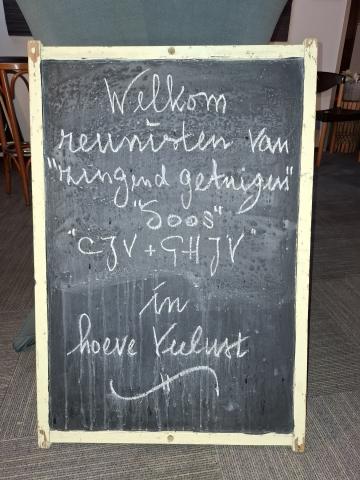 Welkom
reunisten van
"zingend getuigen"
"Soos"
"CJV + GHJV"
in
hoeve Veelust